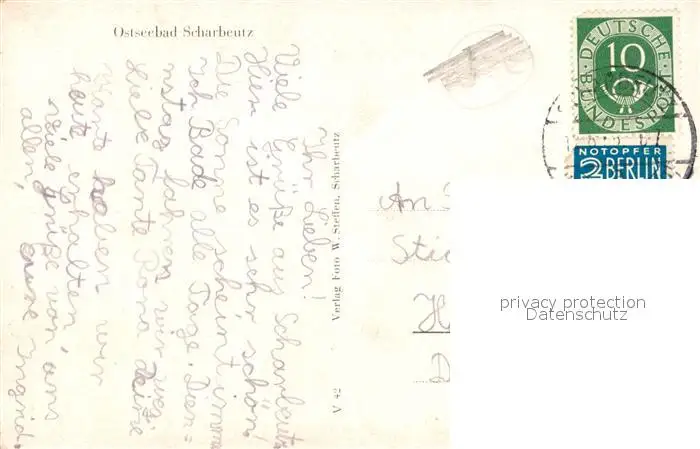 Ostseebad Scharbeutz
Ihr Lieben!
Viele Grüße aus Scharbeutz
Hier ist es sehr schön!
Die Sonne scheint immer
Ich Bade alle Tage. Dien=
nstag fahren wir weg.
Liebe Tante Rora deine
Karte haben wir
heute erhalten
viele grüße von uns
allen, eure Ingrid.
V 42 Verlag Foto W. Steffen, Scharbeutz
DEUTSCHE
10
BUNDESPOST
NOTOPFER
2 BERLIN
An
privacy protection
Datenschutz